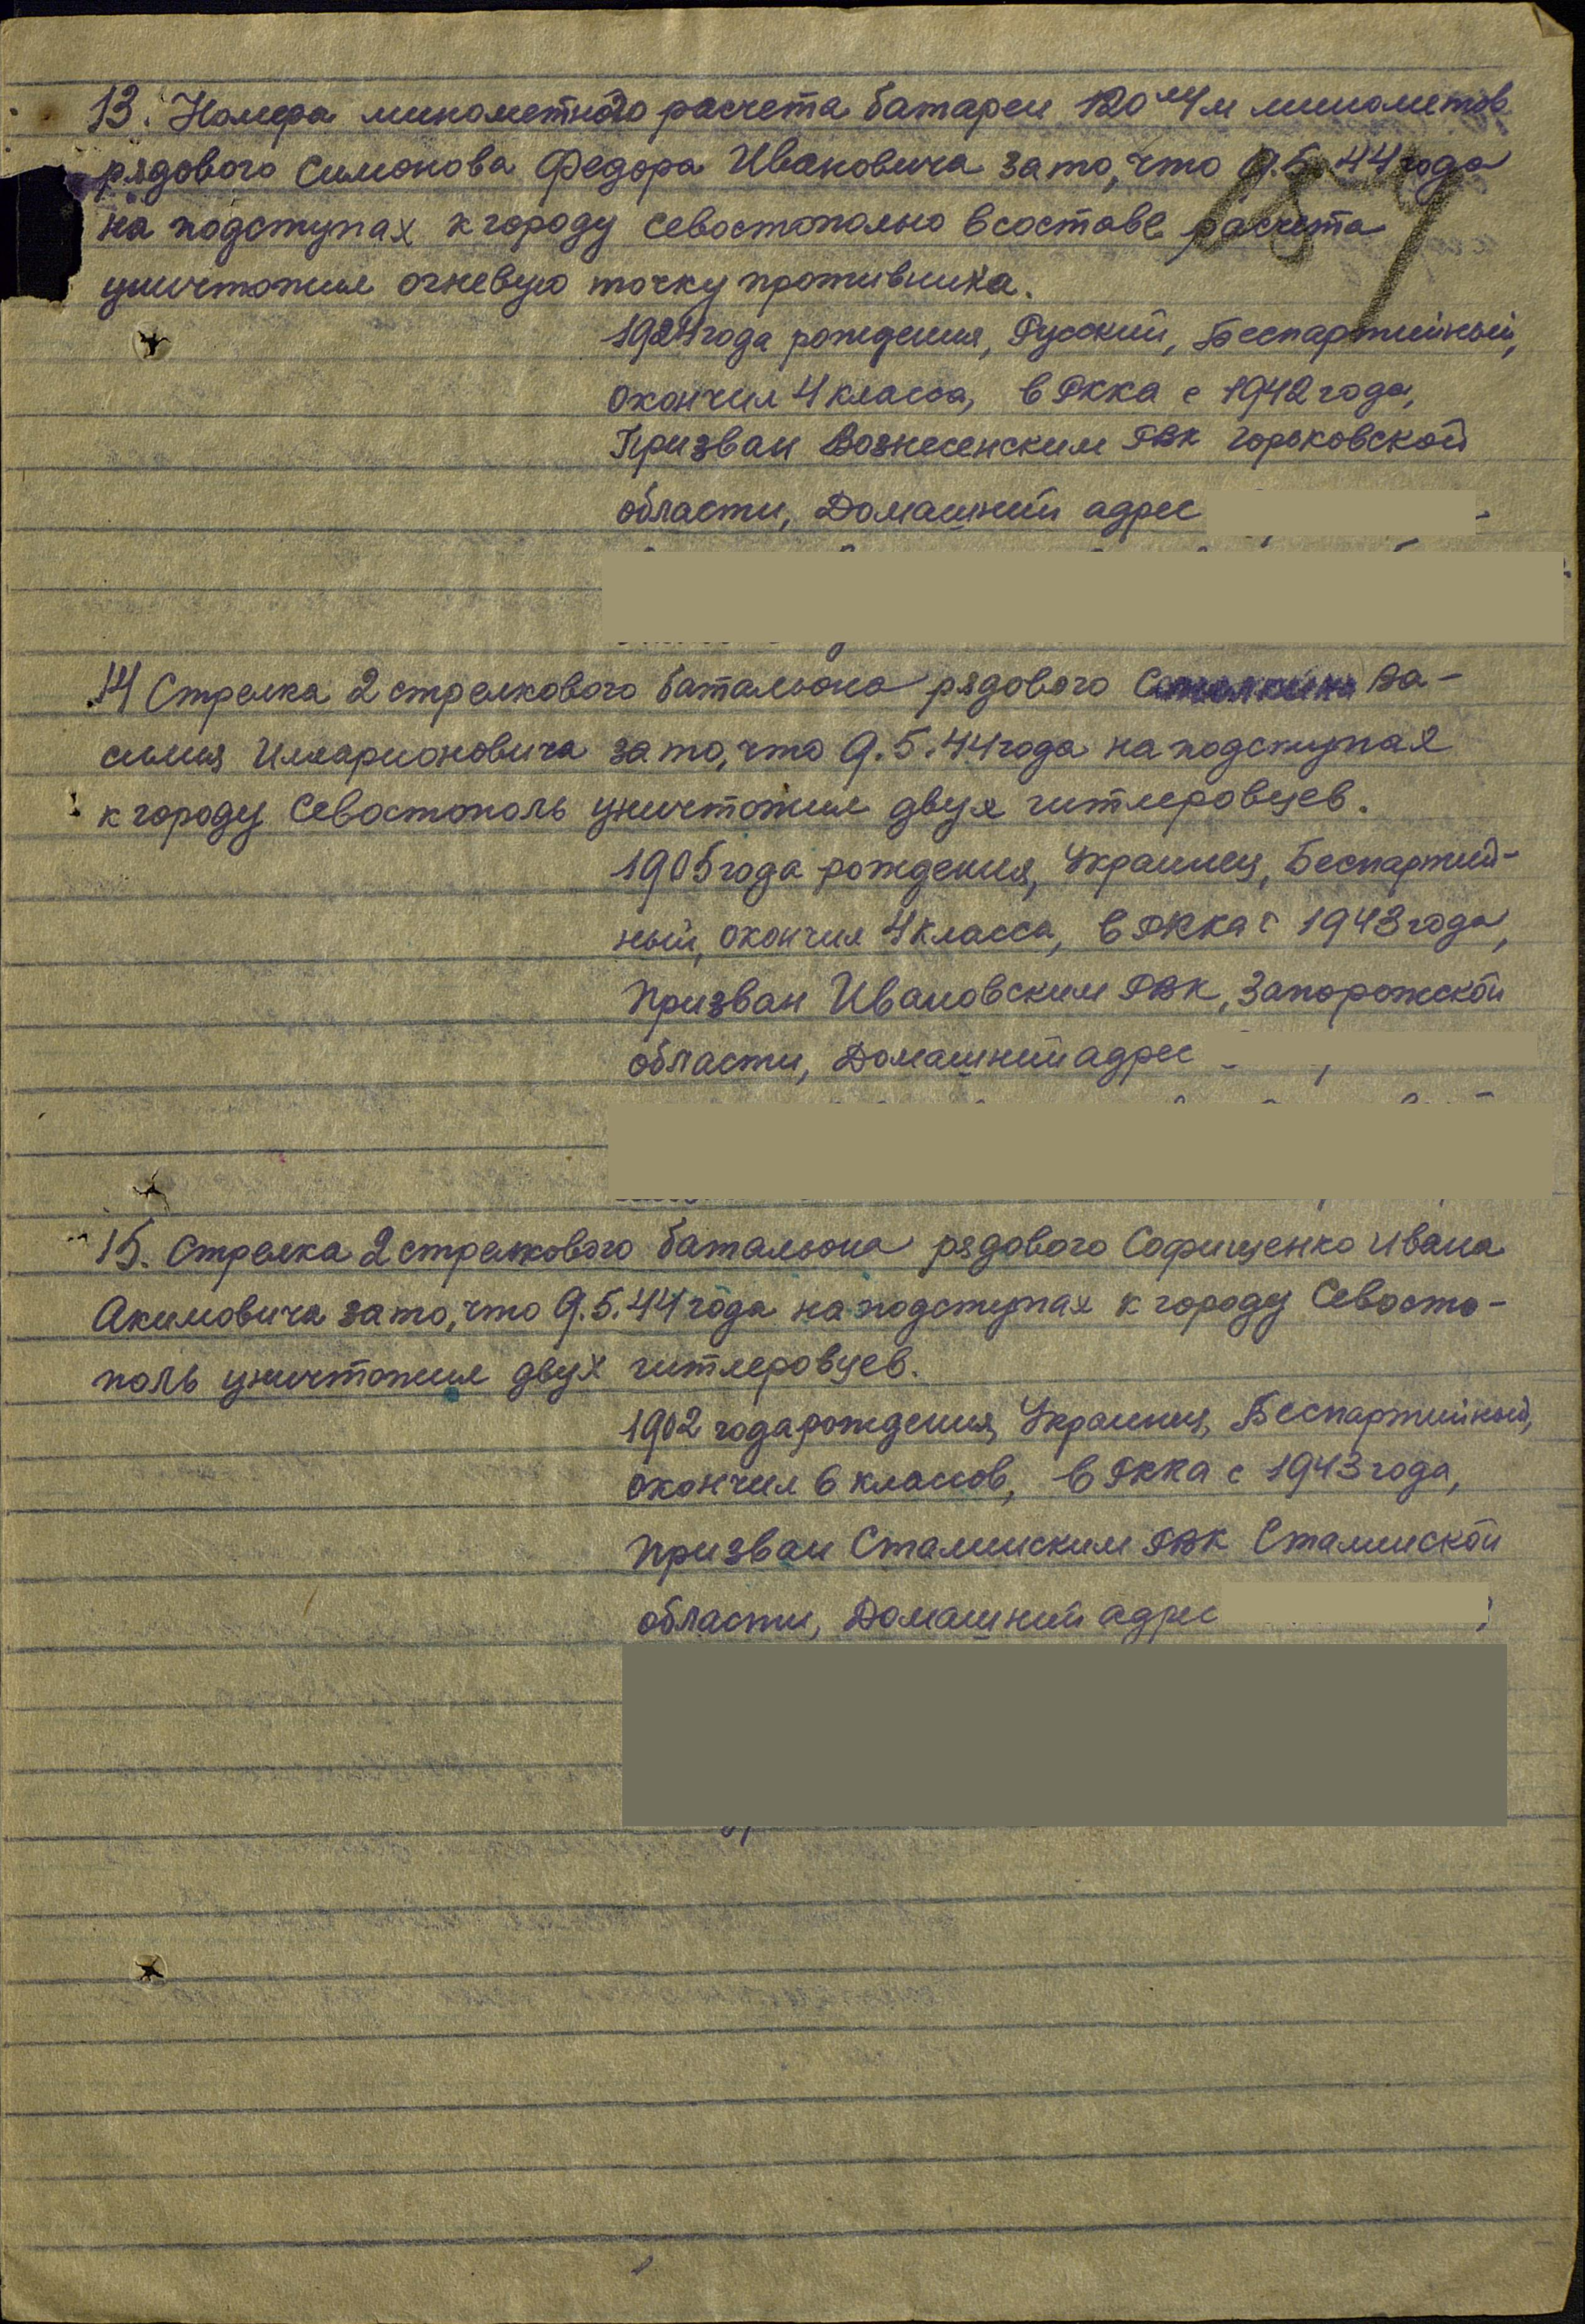 13. Номера минометного расчета батареи 120 м/м минометов
рядового Симонова Федора Ивановича за то, что 9.5.44 года
на подступах к городу Севостополью в составе расчета
уничтожил огневую точку противника.
1924 года рождения, Русский, Беспартийный,
окончил 4 класса, в РККА с 1942 года,
Призван Вознесенским РВК Горьковской
области, Домашний адрес
14 Стрелка 2 стрелкового батальона рядового Ва-
силия Илларионовича за то, что 9.5.44 года на подступах
к городу Севостополь уничтожил двух гитлеровцев.
1905 года рождения, Украинец, Беспартий-
ный, окончил 4 класса, в РККА с 1943 года,
Призван Ивановским РВК, Запорожской
области, Домашний адрес
15. Стрелка 2 стрелкового батальона рядового Софиенко Ивана
Акимовича за то, что 9.5.44 года на подступах к городу Севосто-
поль уничтожил двух гитлеровцев.
1902 года рождения, Украинец, Беспартийный,
окончил 6 классов, в РККА с 1943 года,
Призван Сталинским РВК Сталинской
области, Домашний адрес